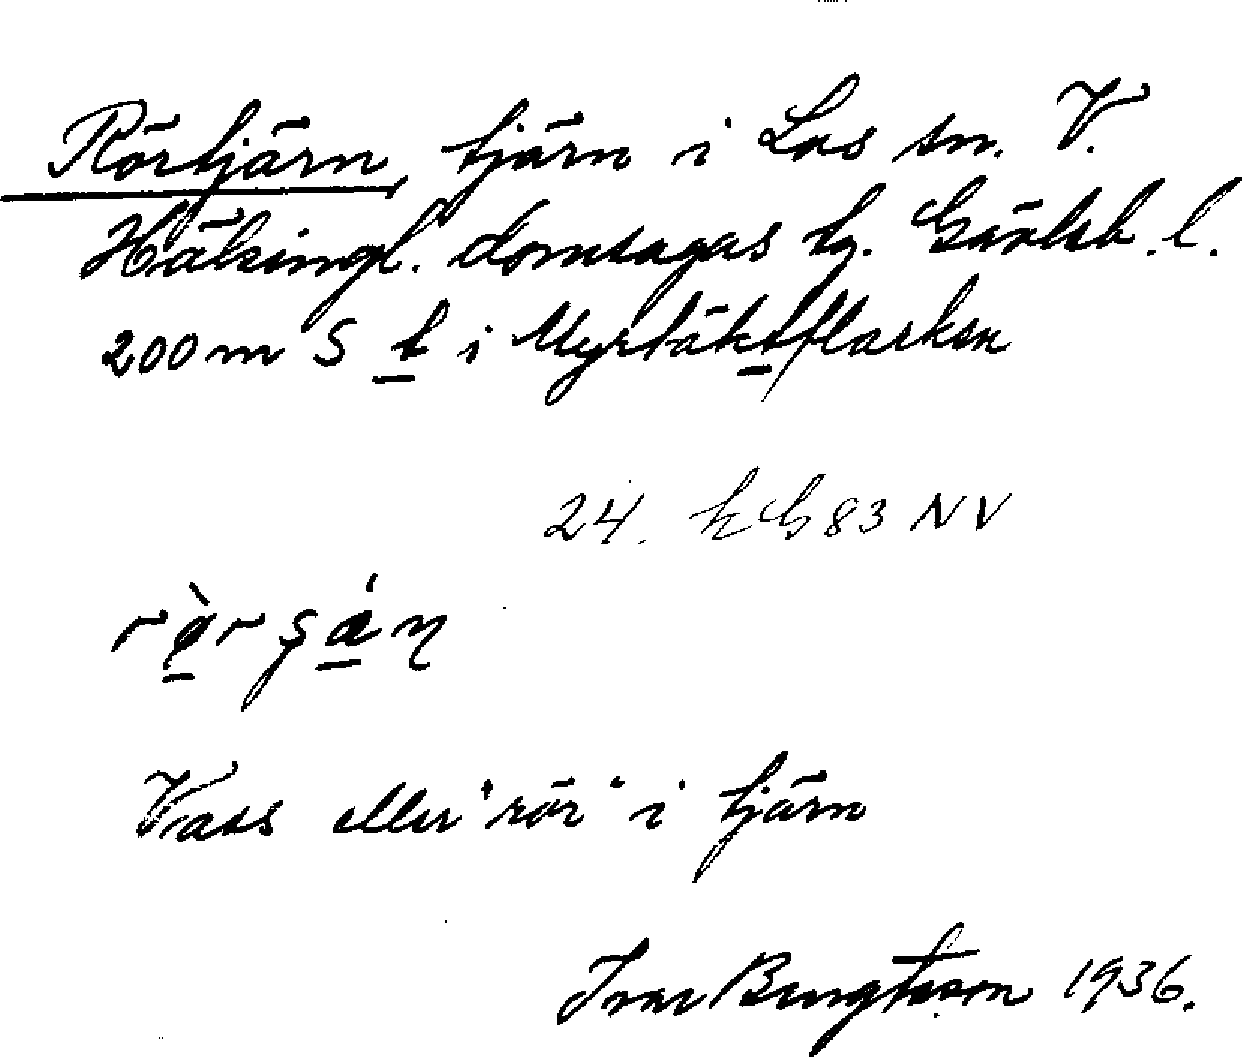 Rörtjärn, tjärn i Los sn. V.
Hälsingl. domsagas tg. Gävleb. l.
200 m S t i Myrtäktflarken
24. h G 83 NV
Vass eller "rör" i tjärn
Ivar Bengtsson 1936.